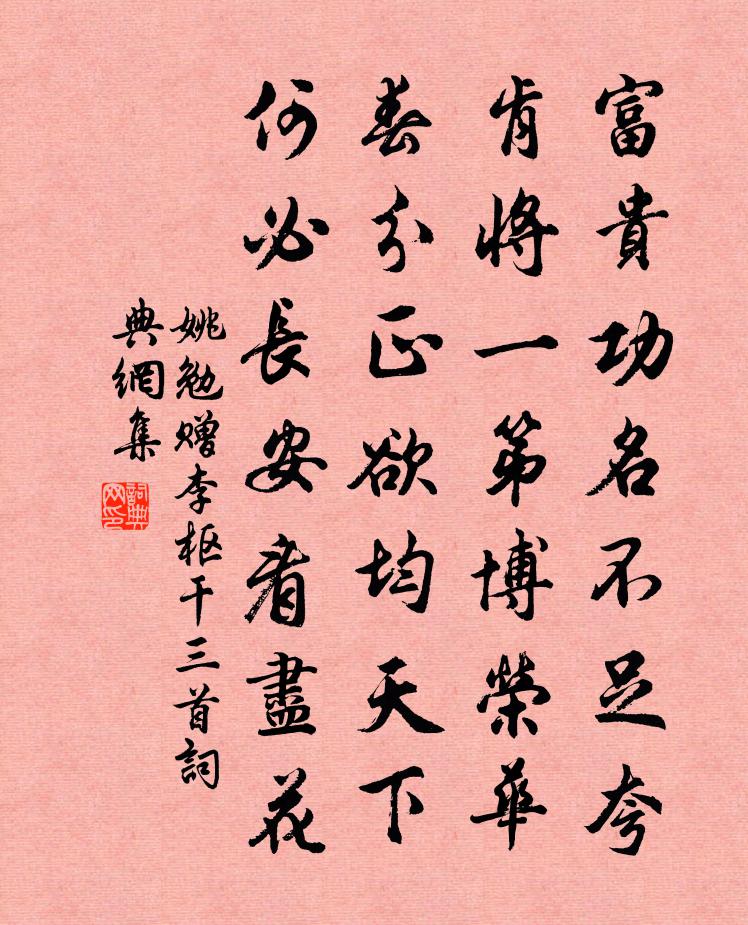 富貴功名不足夸
肯將一第博榮華
春分正欲均天下
何必長安看盡花
姚勉贈李枢干三首詞
典網集
詞典
网印